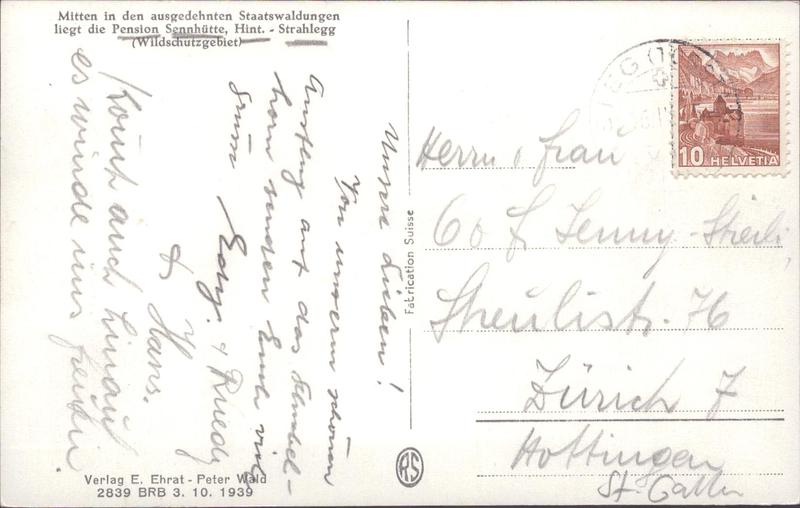 Mitten in den ausgedehnten Staatswaldungen
liegt die Pension Sennhütte, Hint. - Strahlegg
(Wildschutzgebiet)
Unsere Lieben!
Von unserm schönen
Ausflug auf das Schnebel-
horn senden Euch viele
Grüsse Edy. & Ruedi
& Hans.
Komt auch hinauf
es würde uns freuen.
Verlag E. Ehrat - Peter Wald
2839 BRB 3. 10. 1939
Fabrication Suisse
RS
10 HELVETIA
Herrn & Frau
Jenny-
76
Zürich 7
Hottingen
St. Gallen